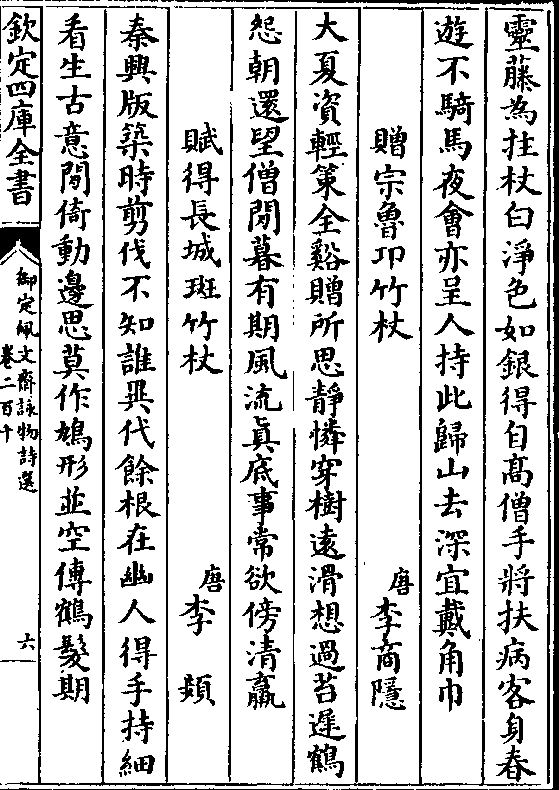 靈藤為拄杖白淨色如銀得自髙僧手將扶病客身春
遊不騎馬夜會亦呈人持此歸山去深宜戴角巾
贈宗魯卭竹杖 唐 李商隱
大夏資輕策全谿贈所思静憐穿樹遠滑想過苔遲鶴
怨朝還望僧閒暮有期風流真底事常欲傍清羸
賦得長城斑竹杖 唐 李頻
秦興版築時剪伐不知誰異代餘根在幽人得手持細
看生古意閒倚動邊思莫作鳩形並空傳鶴髮期
欽定四庫全書
御定佩文齋詠物詩選
卷二百十
六